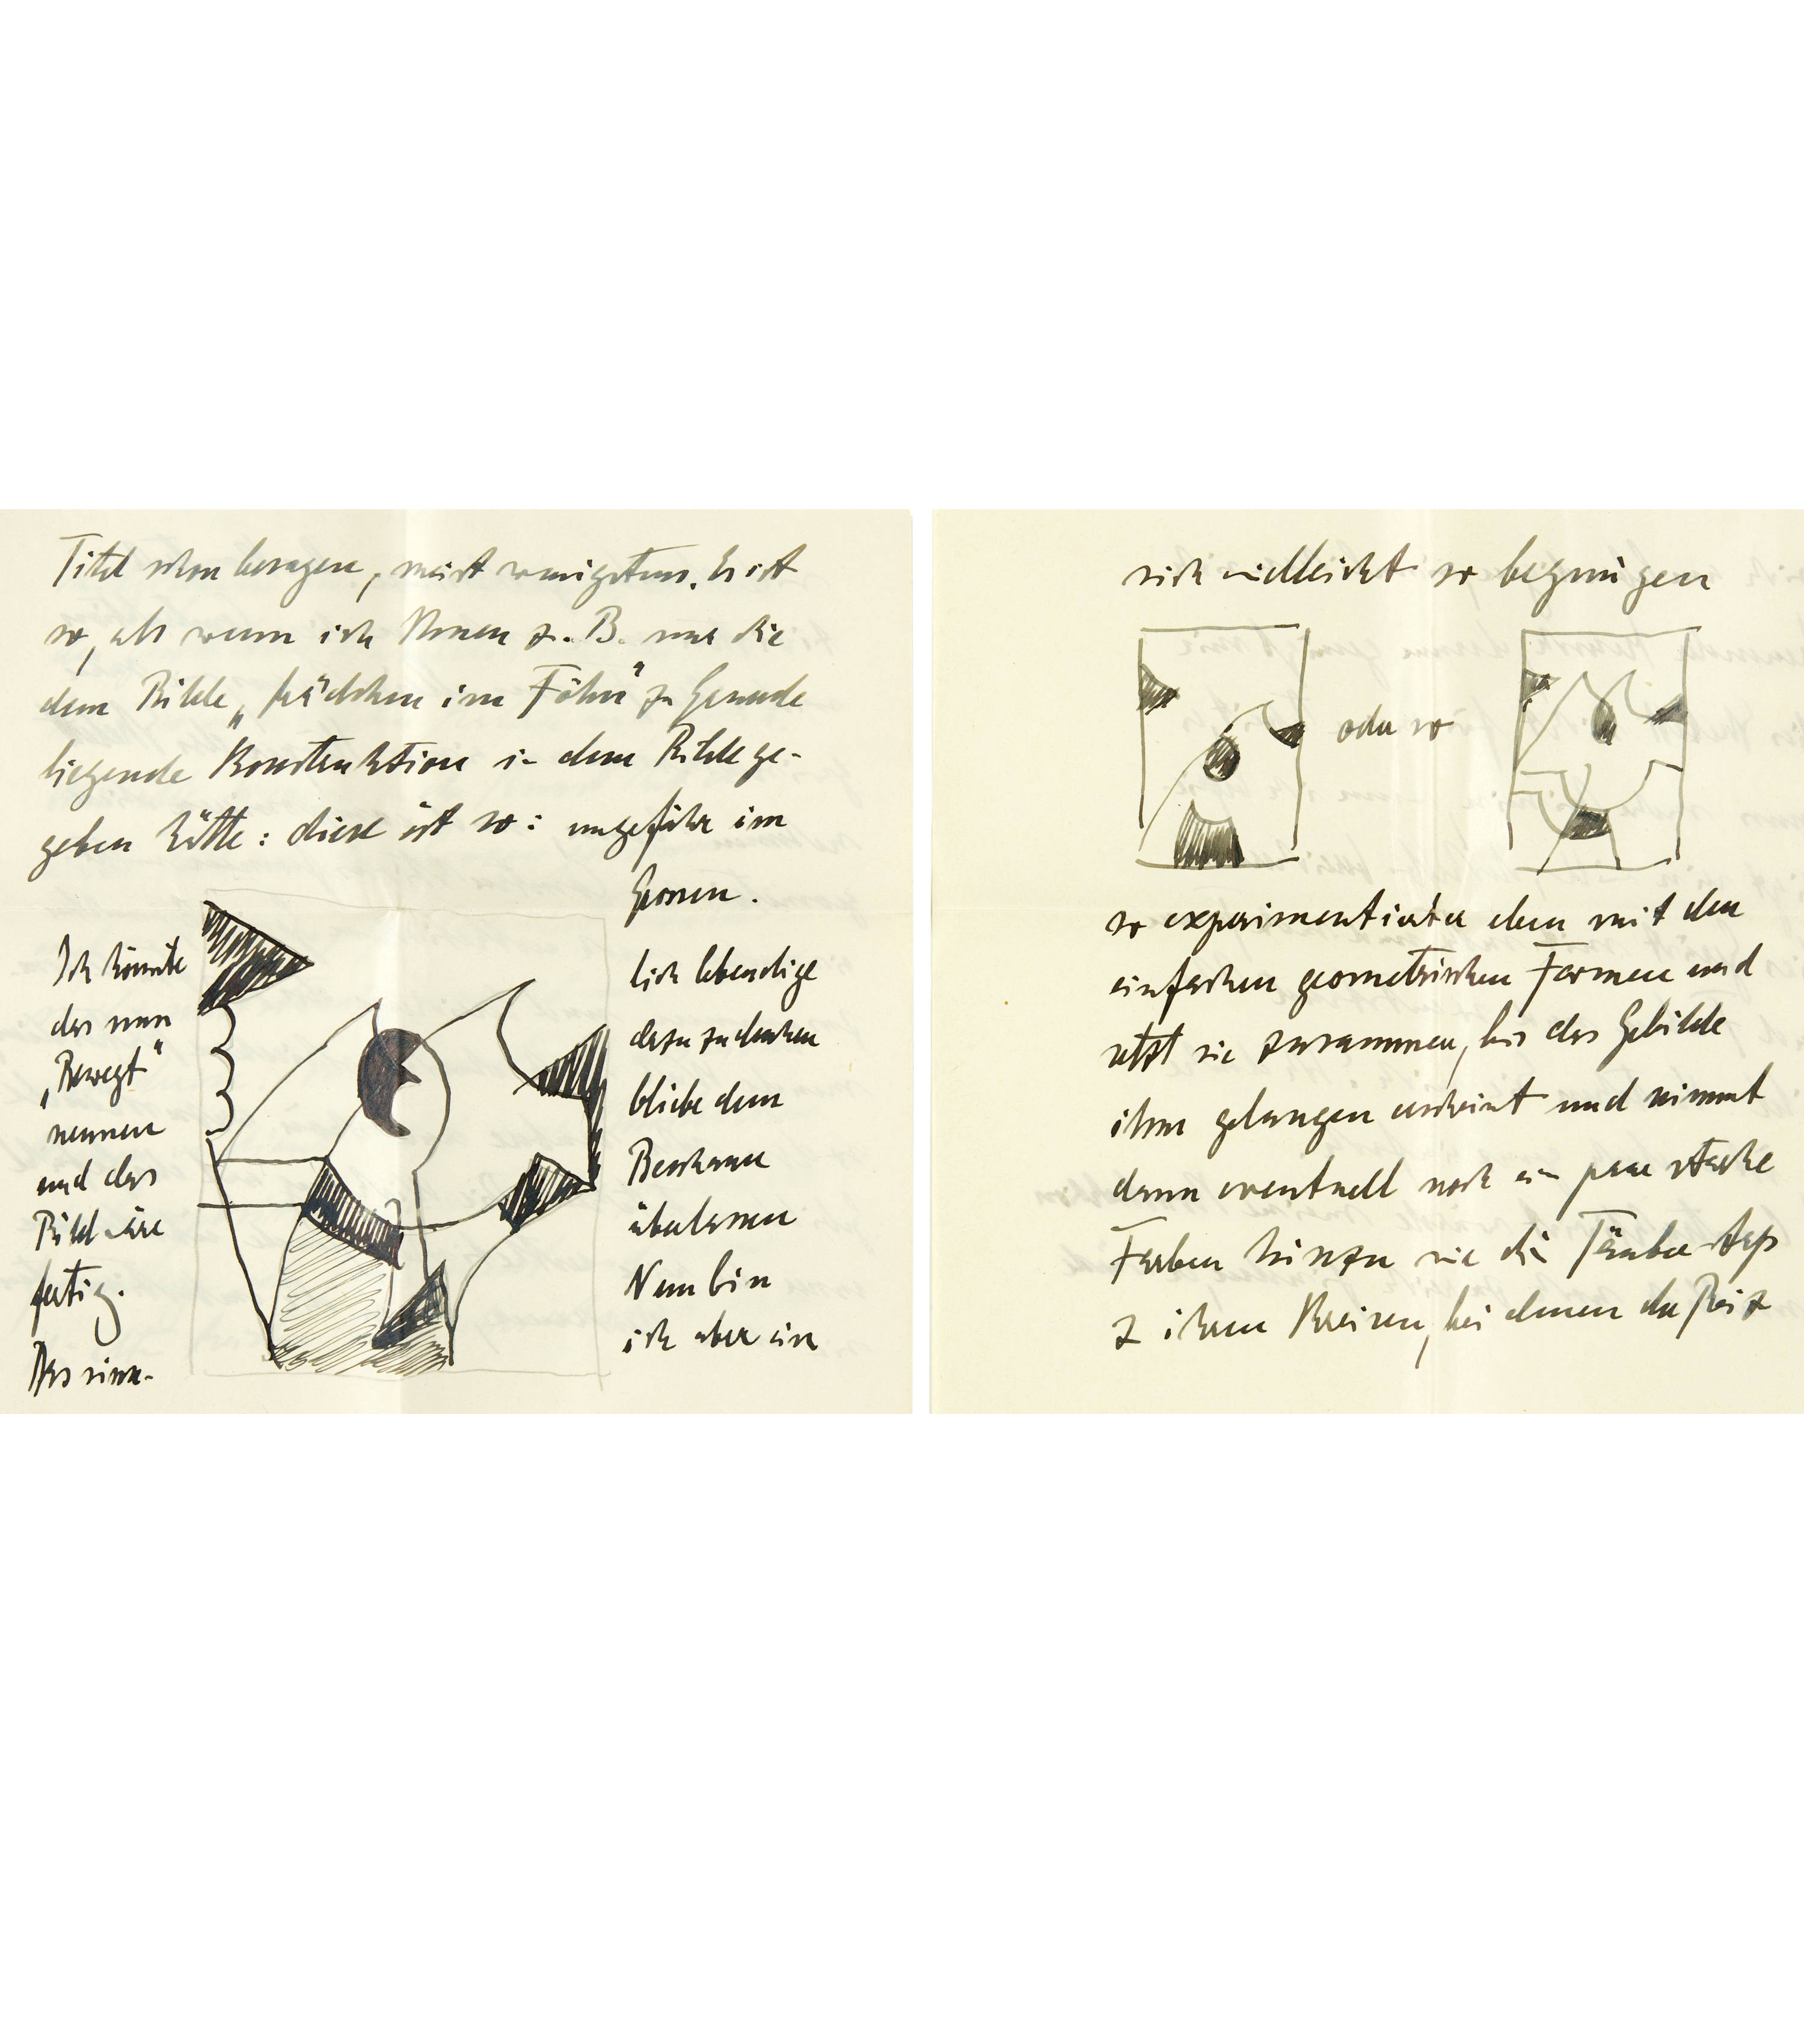 Titel schon besagen, meist wenigstens. Es ist
so, als wenn ich Ihnen z. B. nur die
dem Bilde „Mädchen im Föhn" zu Grunde
liegende Konstruktion in dem Bilde ge-
geben hätte: diese ist so: ungefähr im
Grossen.
Ich könnte
das nun
„Bewegt"
nennen
und das
Bild wäre
fertig.
Das sinn-
lich lebendige
dazu zu denken
bliebe dem
Beschauer
überlassen
Nun bin
ich aber ein
sich vielleicht so begnügen
oder so
so experimentierter eben mit den
einfachen geometrischen Formen und
setzt sie zusammen, bis das Gebilde
ihm gelungen erscheint und nimmt
dann eventuell noch ein paar starke
Farben hinzu wie die Täuber-Arp
z ihren Kreisen, bei denen der Reiz